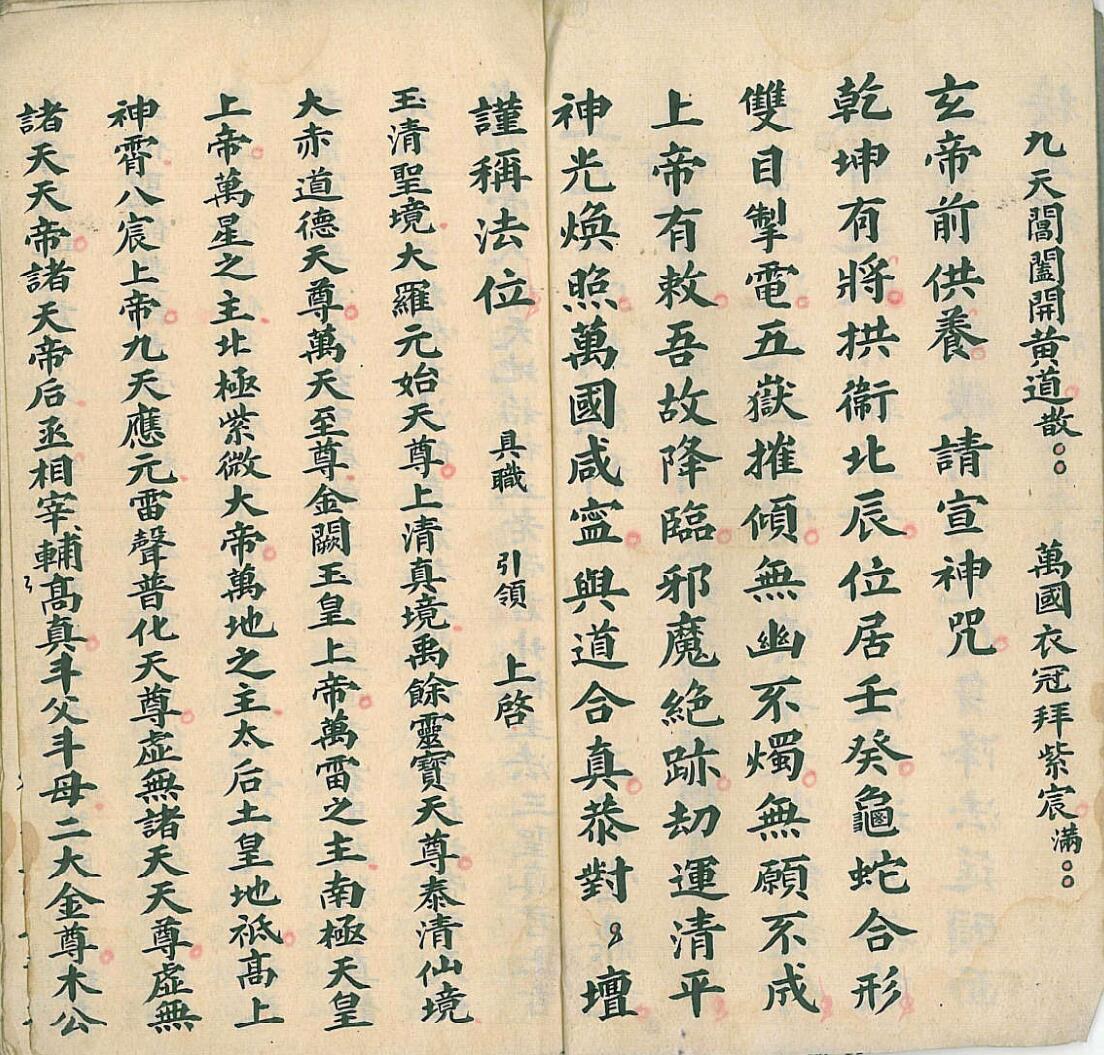 九天閶闔開黃道散。。 萬國衣冠拜紫宸滿。。
玄帝前供養 請宣神咒
乾坤有將拱衞北辰位居壬癸龜蛇合形
雙目掣電五嶽摧傾無幽不燭無願不成
上帝有敕吾故降臨邪魔絕跡劫運清平
神光煥照萬國咸寧與道合真恭對〻壇
謹稱法位 具職 引領 上啓
玉清聖境大羅元始天尊上清真境禹餘靈寶天尊泰清仙境
大赤道德天尊萬天至尊金闕玉皇上帝萬雷之主南極天皇
上帝萬星之主北極紫微大帝萬地之主太后土皇地祇高上
神霄八宸上帝九天應元雷聲普化天尊虛無諸天天尊虛無
諸天天帝諸天帝后丞相宰輔高真斗父斗母二大金尊木公